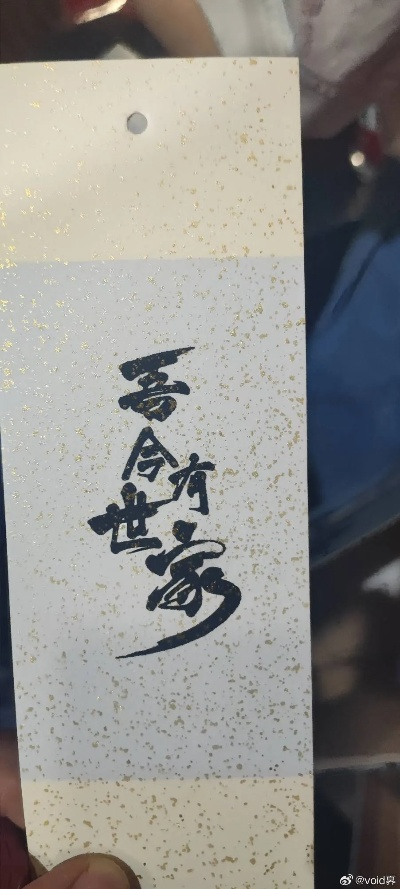 吾今世有家
@void界